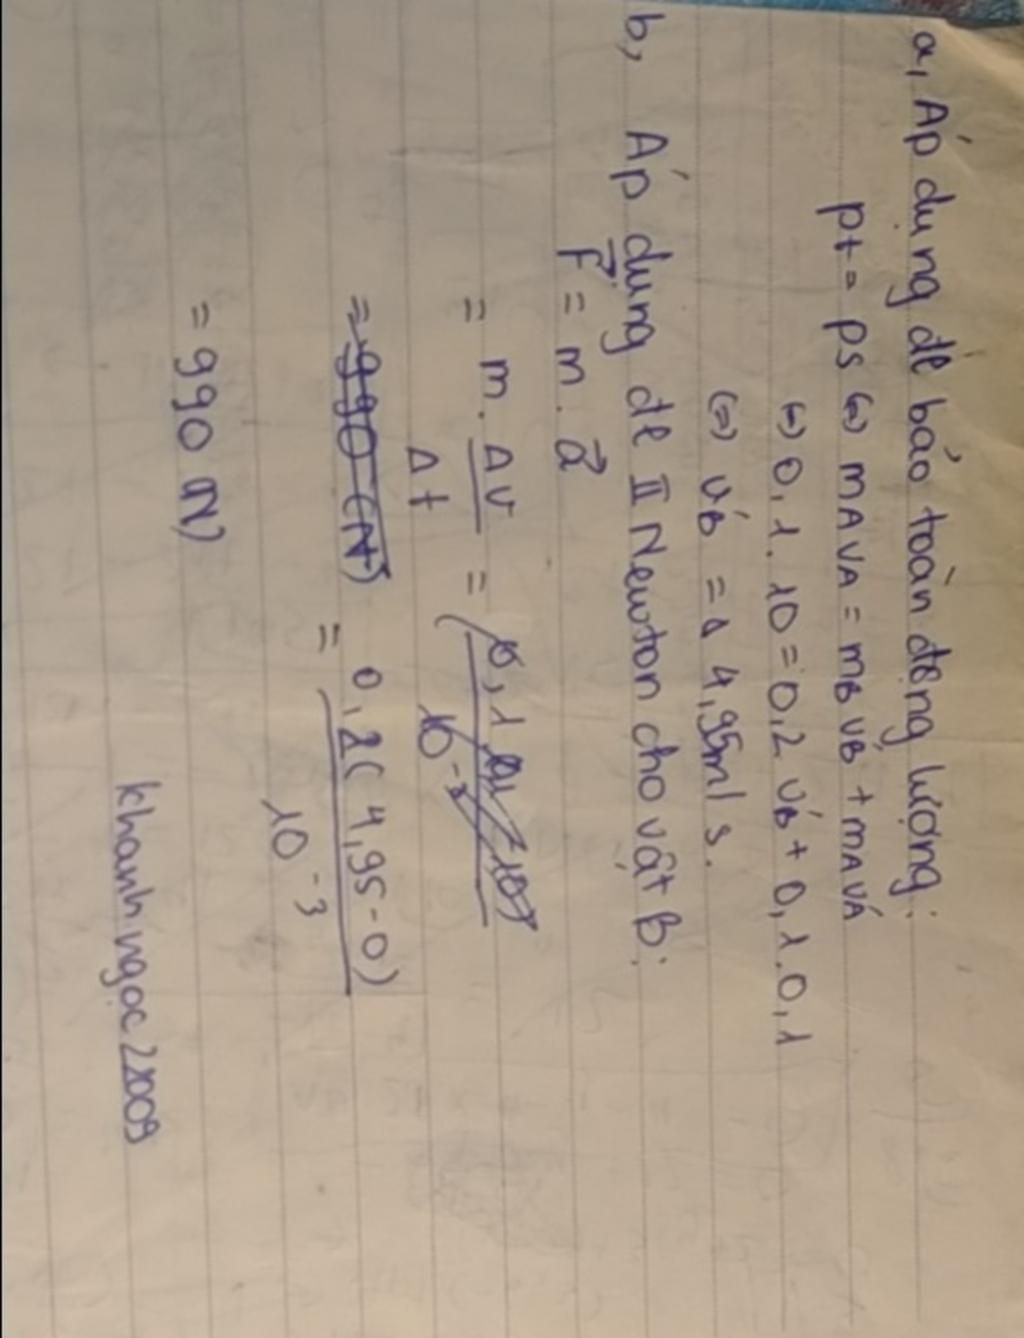 a, Áp dụng đl bảo toàn động lượng:
pt = ps (=) mAvA = mBv'B + mAv'A
(=) 0,1. 10 = 0,2 v'B + 0,1.0,1
(=) v'B = 4,95m/s.
b, Áp dụng đl II Newton cho vật B:
F = m. a
= m. Δv/Δt =
= 0,2(4,95-0)/10⁻³
= 990 (N)
khanhngoc22009